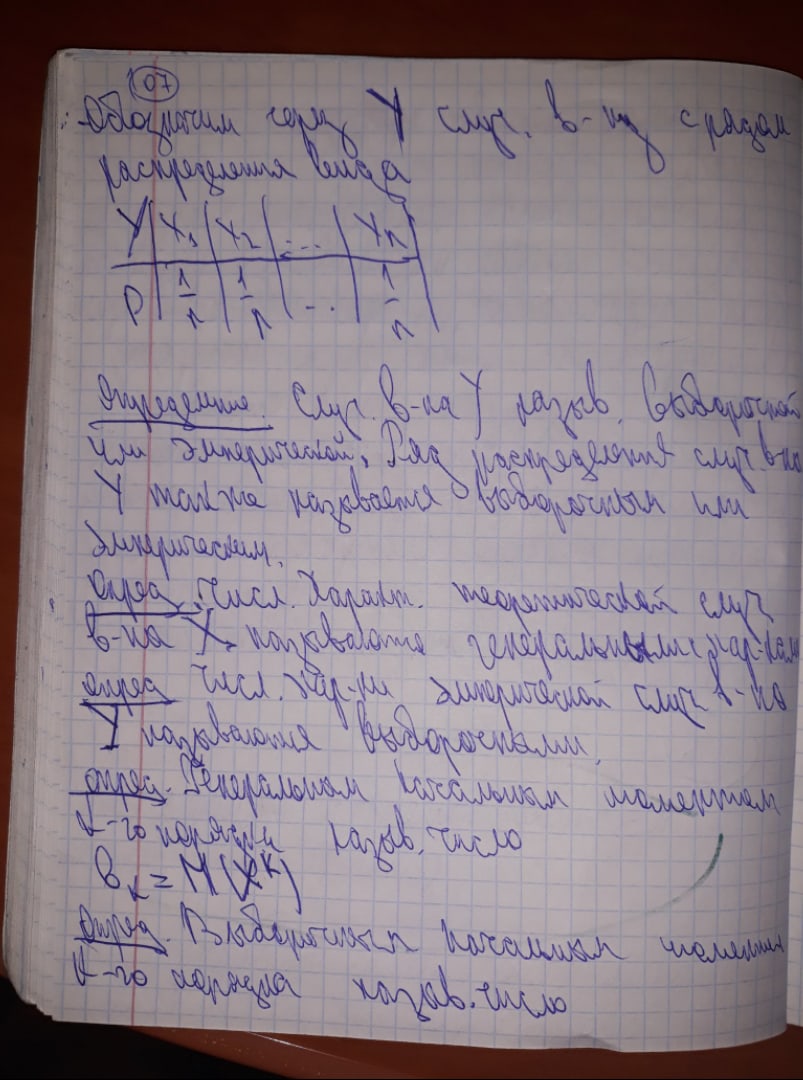 107
Обозначим через Y случ. в-ну с рядом
распределения вида
Y | X₁ | X₂ | ... | Xₙ
P | 1/n | 1/n | ... | 1/n
Определение. Случ. в-на Y назыв. выборочной
или эмперической. Ряд распределения случ. в-ны
Y также называется выборочным или
эмперическим.
Опред. Числ. характ. теоретической случ.
в-ны X называются генеральными хар-ками
опред Числ. хар-ки эмперической случ в-ны
Y называются выборочными.
опред. Генеральным начальным моментом
k-го порядка назыв. число
Bₖ = M(Xᵏ)
Опред. Выборочным начальным моментом
k-го порядка назыв. число